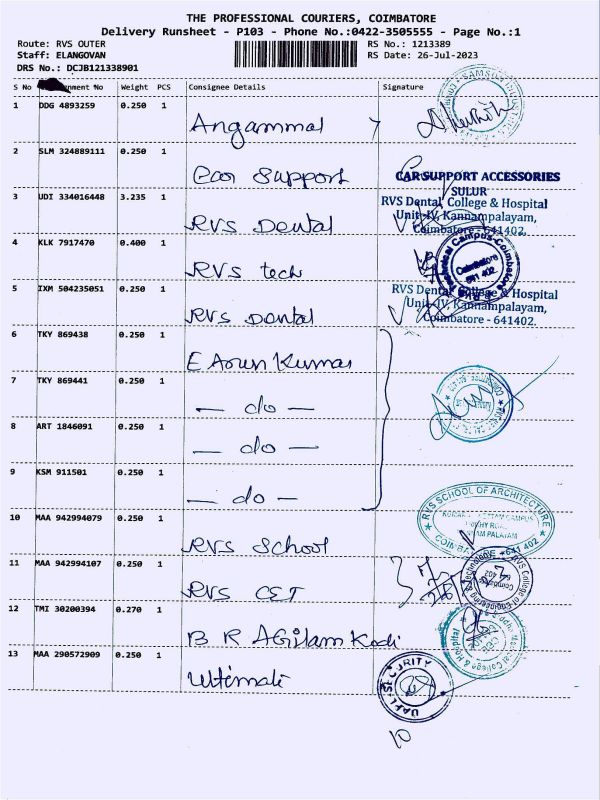 THE PROFESSIONAL COURIERS, COIMBATORE
Delivery Runsheet - P103 - Phone No.:0422-3505555 - Page No.:1
Route: RVS OUTER
RS No.: 1213389
Staff: ELANGOVAN
RS Date: 26-Jul-2023
DRS No.: DCJB121338901
S No nment No Weight PCS Consignee Details Signature
1 DDG 4893259 0.250 1 Angammal
2 SLM 324889111 0.250 1 Car Support
CAR SUPPORT ACCESSORIES
SULUR
3 UDI 334016448 3.235 1 RVS Dental
RVS Dental College & Hospital
Unit-IV, Kannampalayam,
Coimbatore - 641402.
4 KLK 7917470 0.400 1 RVS tech
Technical Campus-Coimbatore
Coimbatore
641 402
5 IXM 504235051 0.250 1 RVS Dental
RVS Dental College & Hospital
Unit-IV, Kannampalayam,
Coimbatore - 641402.
6 TKY 869438 0.250 1 E Arun Kumar
7 TKY 869441 0.250 1 — do —
8 ART 1846091 0.250 1 — do —
9 KSM 911501 0.250 1 — do —
10 MAA 942994079 0.250 1 RVS School
RVS SCHOOL OF ARCHITECTURE
641 402
11 MAA 942994107 0.250 1 RVS CET
RVS College of Engineering & Technology
Coimbatore
12 TMI 30200394 0.270 1 B R AGilam Kodi
College & Hospital
13 MAA 290572909 0.250 1 Ultimate
SECURITY
10